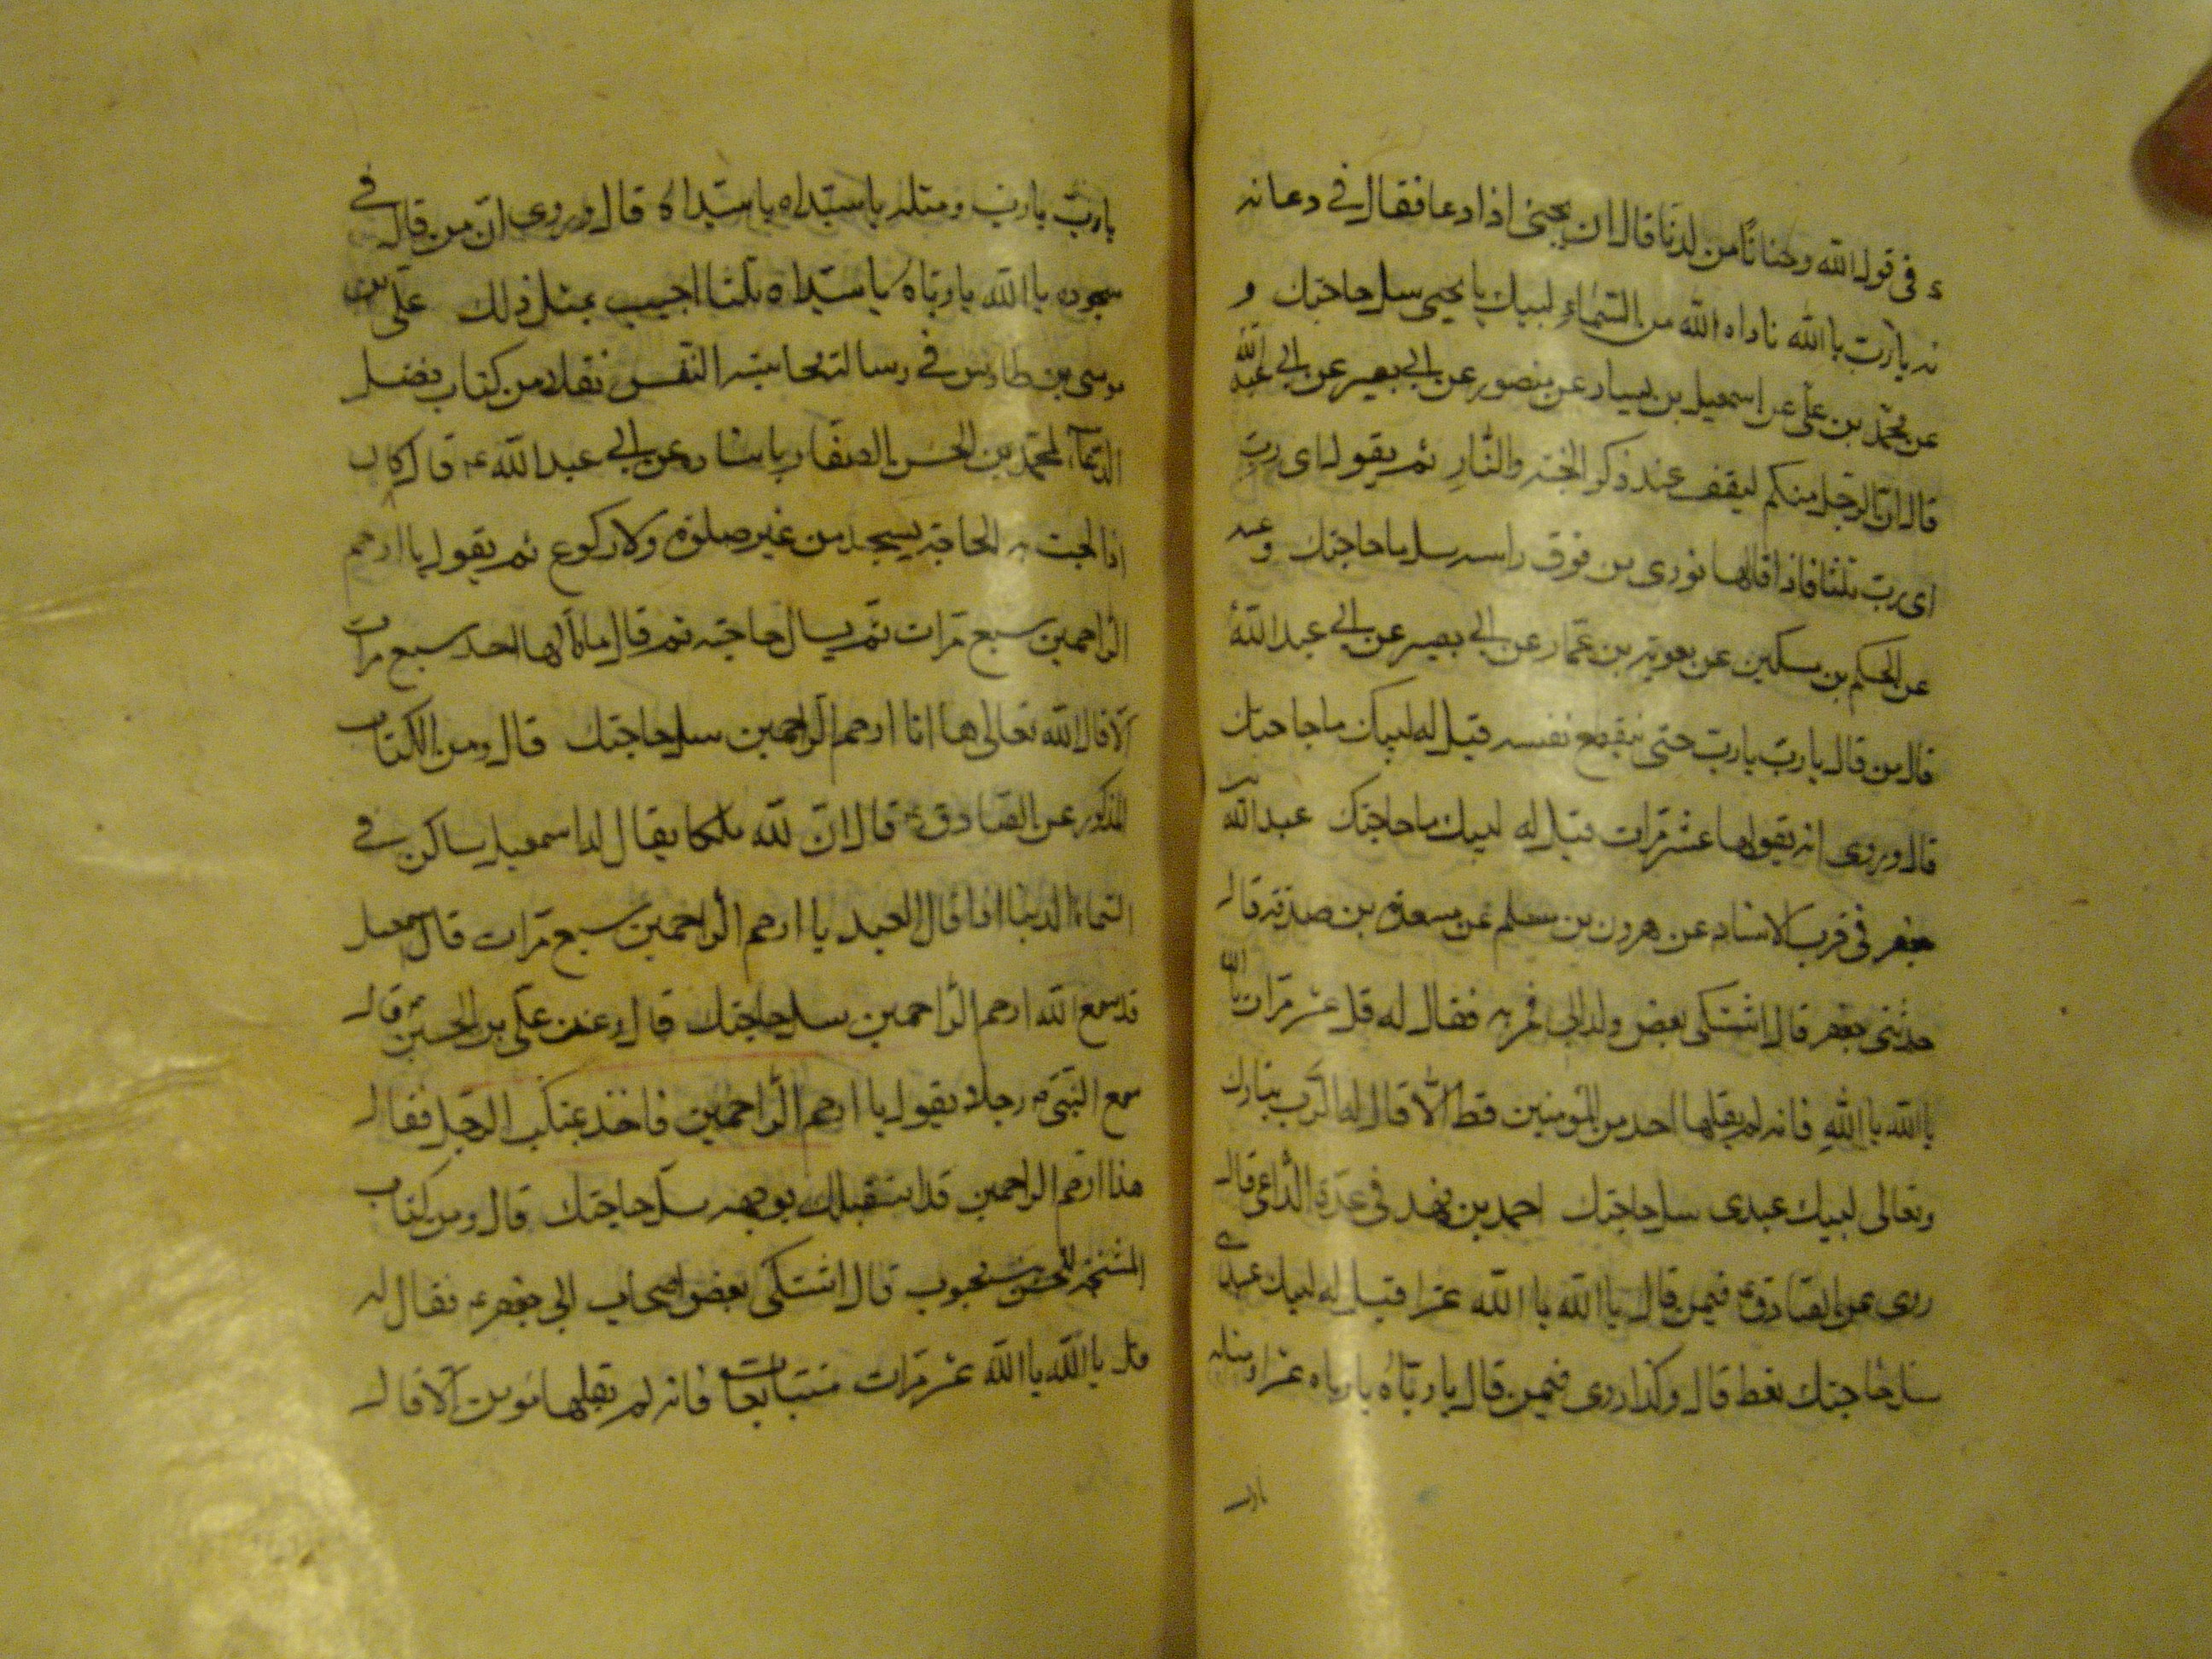 ء في قول الله وحنانًا من لدنا قال ان يحيى اذا دعا فقال في دعائه
يه يا رب يا الله ناداه الله من السماء لبيك يا يحيى سل حاجتك و
عن محمد بن علي عن اسمعيل بن يسار عن منصور عن ابي بصير عن ابي عبد الله
قال ان الرجل منكم ليقف عند ذكر الجنة والنار ثم يقول اى رب
اى رب ثلثا فاذا قالها نودى من فوق راسه سل ما حاجتك وعنه
عن الحكم بن مسكين عن معوية بن عمار عن ابي بصير عن ابي عبد الله
قال من قال يا رب يا رب حتى ينقطع نفسه قيل له لبيك ما حاجتك
قال وروى انه يقولها عشر مرات قيل له لبيك ما حاجتك عبد الله بن
جعفر في قرب الاسناد عن هرون بن مسلم عن مسعدة بن صدقة قال
حدثنى جعفر قال اشتكى بعض ولد ابي فمر به فقال له قل عشر مرات يا الله
يا الله يا الله فانه لم يقلها احد من المؤمنين قط الا قال له الرب تبارك
وتعالى لبيك عبدى سل حاجتك احمد بن فهد في عدة الداعى قال
روى عن الصادق ع فيمن قال يا الله يا الله عشرا قيل له لبيك عبدى
سل حاجتك تعط قال وكذا روى فيمن قال يا رباه يا رباه عشرا ومثله
يا رب
يا رب يا رب ومثله يا سيداه يا سيداه قال وروى ان من قال في
سجوده يا الله يا رباه يا سيداه ثلثا اجيب بمثل ذلك على بن
موسى بن طاوس في رسالة محاسبة النفس نقلا من كتاب فضل
الدعآ لمحمد بن الحسن الصفار باسناده عن ابي عبد الله ع قال كان ابى
اذا الحت به الحاجة يسجد من غير صلوة ولا ركوع ثم يقول يا ارحم
الراحمين سبع مرات ثم يسال حاجته ثم قال ما قالها احد سبع مرات
الا قال الله تعالى ها انا ارحم الراحمين سل حاجتك قال ومن الكتاب
المذكور عن الصادق ع قال ان لله ملكا يقال له اسمعيل ساكن في
السماء الدنيا اذا قال العبد يا ارحم الراحمين سبع مرات قال اسمعيل
قد سمع الله ارحم الراحمين سل حاجتك قال وعن على بن الحسين ع قال
سمع النبي ص رجلا يقول يا ارحم الراحمين فاخذ بمنكب الرجل فقال
هذا ارحم الراحمين قد استقبلك بوجهه سل حاجتك قال ومن كتاب
المشيخة للحسن بن محبوب قال اشتكى بعض اصحاب ابي جعفر ع فقال له
قل يا الله يا الله عشر مرات متتابعات فانه لم يقلها مؤمن الا قال